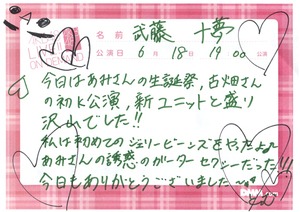 名前 武藤 十夢
公演日 6月 18日 19:00 公演
今日はあみさんの生誕祭,古畑さん
の初K公演,新ユニットと盛り
沢山でした!!
私は初めてのジェリービーンズをやったよ♪
あみさんの誘惑のガーターセクシーだった!!!
今日もありがとうございました